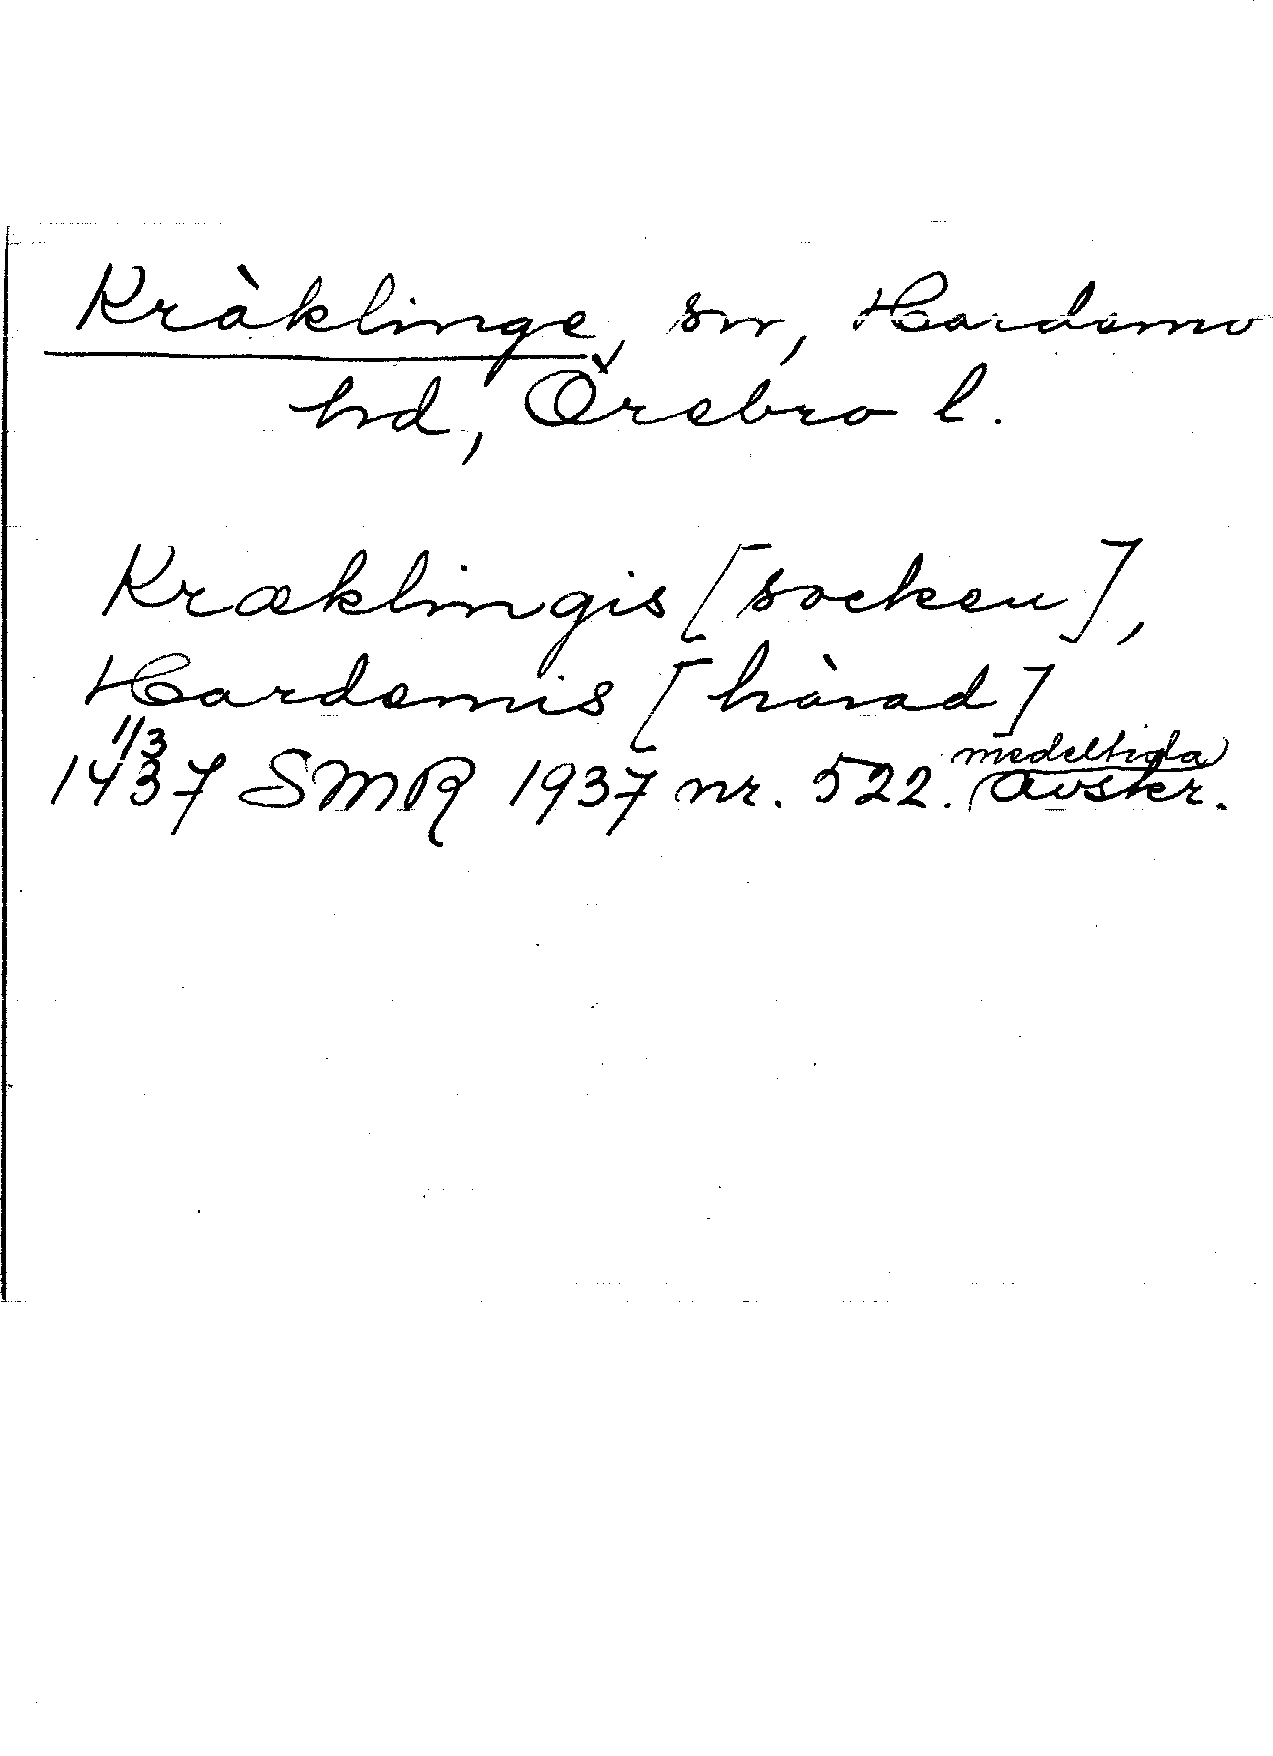 Kräklinge, sn, Hardemo
hd, Örebro l.
Kræklingis [socken],
Hardemis [härad]
1/3
1437 SMR 1937 nr. 522. (medeltida)
Avskr.